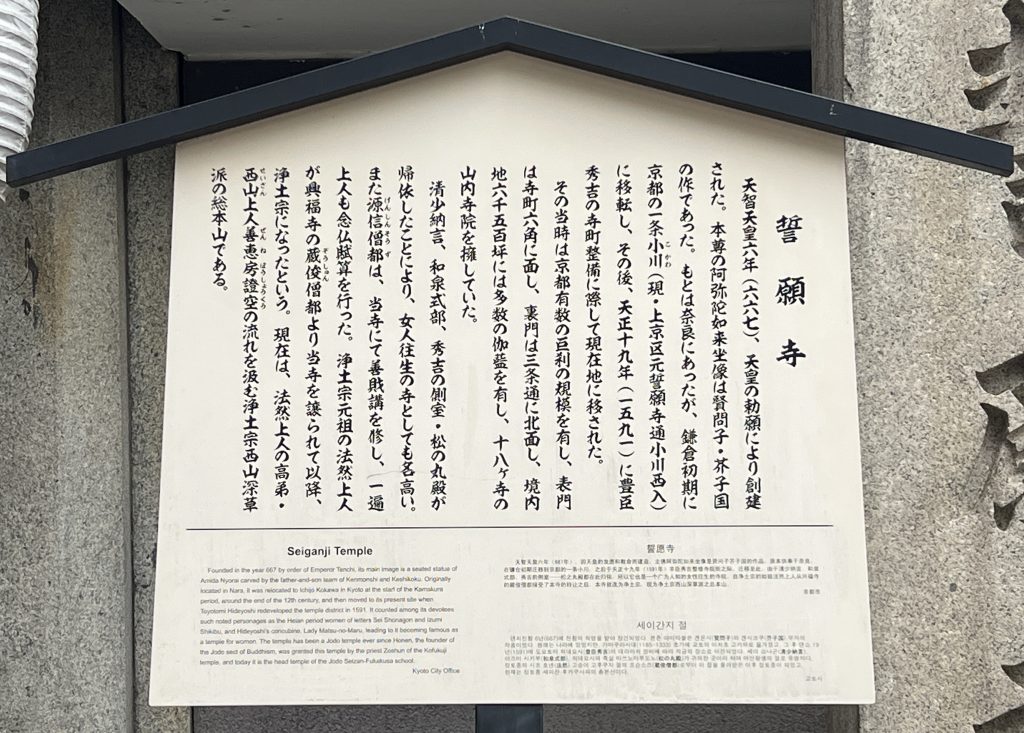 誓願寺
天智天皇六年（六六七）、天皇の勅願により創建
された。本尊の阿弥陀如来坐像は賢問子・芥子国
の作であった。もとは奈良にあったが、鎌倉初期に
京都の一条小川（現・上京区元誓願寺通小川西入）
に移転し、その後、天正十九年（一五九一）に豊臣
秀吉の寺町整備に際して現在地に移された。
その当時は京都有数の巨刹の規模を有し、表門
は寺町六角に面し、裏門は三条通に北面し、境内
地六千五百坪には多数の伽藍を有し、十八ヶ寺の
山内寺院を擁していた。
清少納言、和泉式部、秀吉の側室・松の丸殿が
帰依したことにより、女人往生の寺としても名高い。
また源信僧都は、当寺にて善財講を修し、一遍
上人も念仏賦算を行った。浄土宗元祖の法然上人
が興福寺の蔵俊僧都より当寺を譲られて以降、
浄土宗になったという。現在は、法然上人の高弟・
西山上人善恵房證空の流れを汲む浄土宗西山深草
派の総本山である。
Seiganji Temple
Founded in the year 667 by order of Emperor Tenchi, its main image is a seated statue of
Amida Nyorai carved by the father-and-son team of Kenmonshi and Keshikoku. Originally
located in Nara, it was relocated to Ichijo Kokawa in Kyoto at the start of the Kamakura
period, around the end of the 12th century, and then moved to its present site when
Toyotomi Hideyoshi redeveloped the temple district in 1591. It counted among its devotees
such noted personages as the Heian period women of letters Sei Shonagon and Izumi
Shikibu, and Hideyoshi's concubine, Lady Matsu-no-Maru, leading to it becoming famous as
a temple for women. The temple has been a Jodo temple ever since Honen, the founder of
the Jodo sect of Buddhism, was granted this temple by the priest Zoshun of the Kofukuji
temple, and today it is the head temple of the Jodo Seizan-Fukakusa school.
Kyoto City Office
誓愿寺
京都市
세이간지 절
교토시